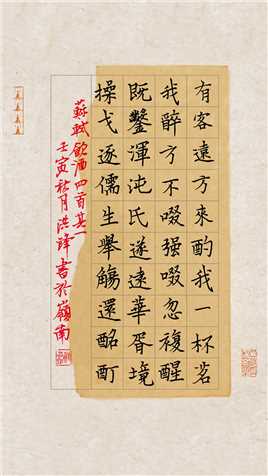 有客遠方來酌我一杯茗
我醉方不啜强啜忽複醒
既鑿渾沌氏遂遠華胥境
操戈逐儒生舉觴還酩酊
蘇軾飲酒四首其一
壬寅秋月洪鋒書於嶺南